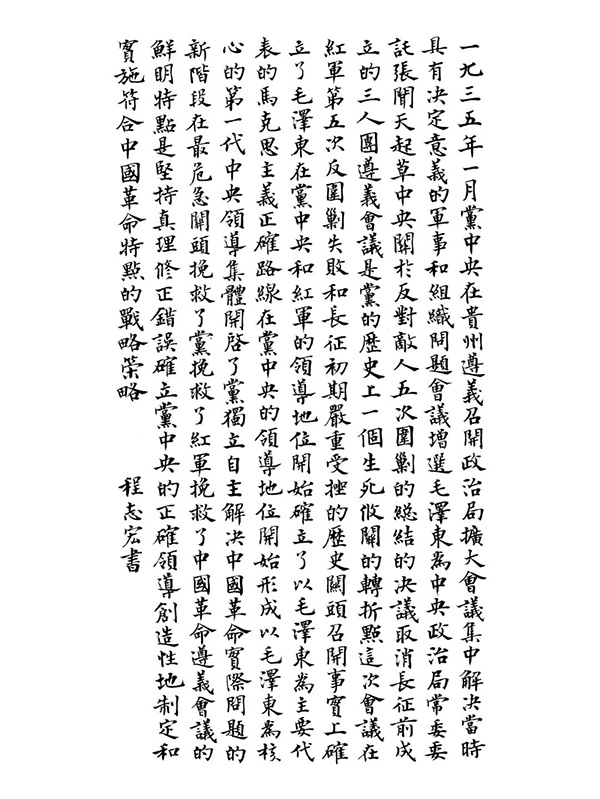 一九三五年一月黨中央在貴州遵義召開政治局擴大會議集中解決當時
具有决定意義的軍事和組織問題會議增選毛澤東為中央政治局常委委
託張聞天起草中央關於反對敵人五次圍剿的總結的决議取消長征前成
立的三人團遵義會議是黨的歷史上一個生死攸關的轉折點這次會議在
紅軍第五次反圍剿失敗和長征初期嚴重受挫的歷史關頭召開事實上確
立了毛澤東在黨中央和紅軍的領導地位開始確立了以毛澤東為主要代
表的馬克思主義正確路線在黨中央的領導地位開始形成以毛澤東為核
心的第一代中央領導集體開啓了黨獨立自主解决中國革命實際問題的
新階段在最危急關頭挽救了黨挽救了紅軍挽救了中國革命遵義會議的
鮮明特點是堅持真理修正錯誤確立黨中央的正確領導創造性地制定和
實施符合中國革命特點的戰略策略 程志宏書